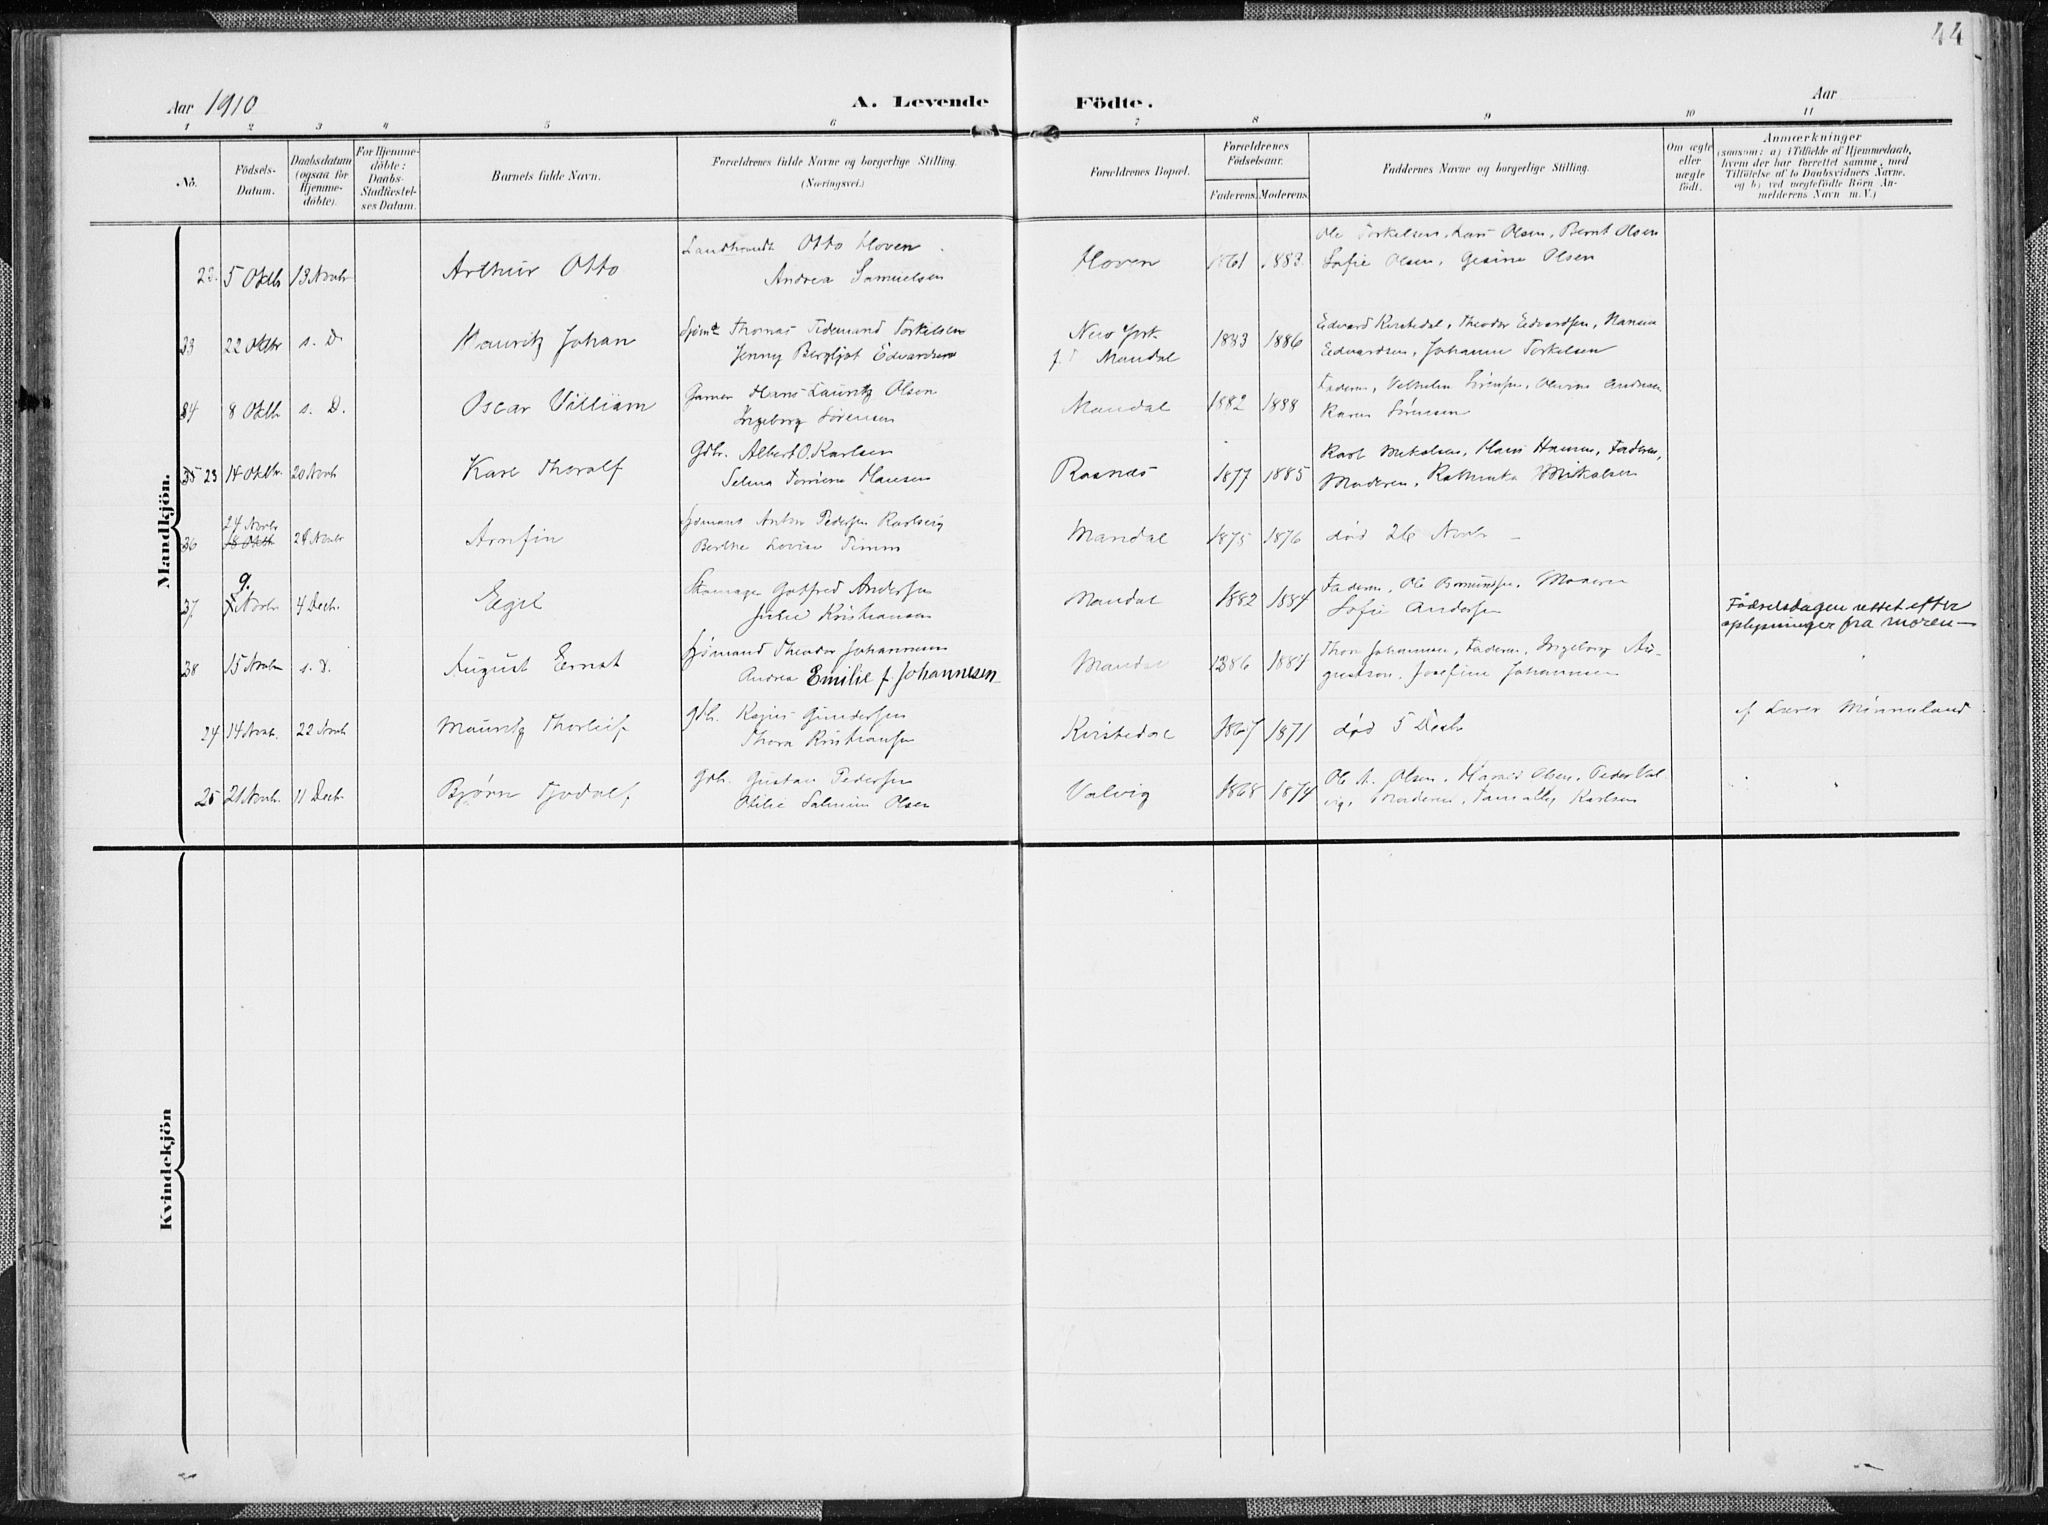 44
Aar 1910
A. Levende Födte.
Aar
1 2 3 4 5 6 7 8 9 10 11
No.
Födsels-Datum.
Daabsdatum (ogsaa for Hjemme-döbte).
For Hjemme-döbte: Daabs-Stadfæstel-ses Datum.
Barnets fulde Navn.
Forældrenes fulde Navne og borgerlige Stilling.
(Næringsvei.)
Forældrenes Bopæl.
Forældrenes Födselsaar.
Faderens. Moderens.
Faddernes Navne og borgerlige Stilling.
Om ægte eller uægte födt.
Anmærkninger
(saasom: a) i Tilfælde af Hjemmedaab,
hvem der har forrettet samme, med
Tilföielse af to Daabsvidners Navne.
og b) ved uægtefödte Börn An-
melderens Navn m. V.)
Mandkjön.
22. 5 Oktbr 13 Novbr Arthur Otto
Otto Hoven
Andrea Samuelsen
Hoven 1861 1883
Ole Torkelsen, Lars Olsen, Bernt Olsen
Sofie Olsen, Gesine Olsen
33 22 Oktbr s. D. Mauritz Johan
Sjømd Thomas Tidemand Torkelsen
Jenny Bergljot Edvardsen
New York
f.t. Mandal 1883 1886
Edvard Kvistedal, Theodor Edvardsen, Hanna
Edvardsen, Johanne Torkelsen
34 8 Oktbr s. D. Oscar Villiam
Garver Hans Lauritz Olsen
Ingeborg Sørensen
Mandal 1882 1888
Faderen, Vilhelm Sørensen, Olevine Andresen
Karen Sørensen
35 23 14 Oktbr. 20 Novbr Karl Thoralf
Gdbr. Albert O. Karlsen
Selma Tomine Hansen
Rosnes 1877 1885
Karl Mikalsen, Hans Hansen, Faderen,
Moderen, Kathinka Mikalsen
36 24 Novbr 18 Oktbr 24 Novbr Arnfin
Sjømand Anton Pedersen Karlberg
Berthe Lovise Timm
Mandal 1875 1876 død 26 Novbr –
37 9. Novbr 4 Decbr. Egil
Skomager Gotfred Andersen
Julie Kristiansen
Mandal 1882 1884
Faderen, Ole Bomundsen, Moderen
Sofie Andersen
Fødselsdagen rettet efter
oplysninger fra moren –
38 15 Novbr s. D. August Ernst
Sjømand Theodor Johannesen
Andrea Emilie f. Johannesen
Mandal 1886 1884
Thora Johannesen, Faderen, Ingeborg Au-
gustson, Josefine Johannesen
24 14 Novbr. 22 Novbr Mauritz Thorleif
Gdbr. Kajus Gundersen
Thora Kristiansen
Kvistedal 1867 1871 død 5 Decbr
af Lærer Mønneland
25 21 Novbr. 11 Decbr. Bjørn Tjodolf
Gdbr. Gustav Pedersen
Otilie Salmine Olsen
Valvig 1868 1874
Ole A. Olsen, Harald Olsen, Peder Val-
vig, Moderen, Karlsen
Kvindekjön